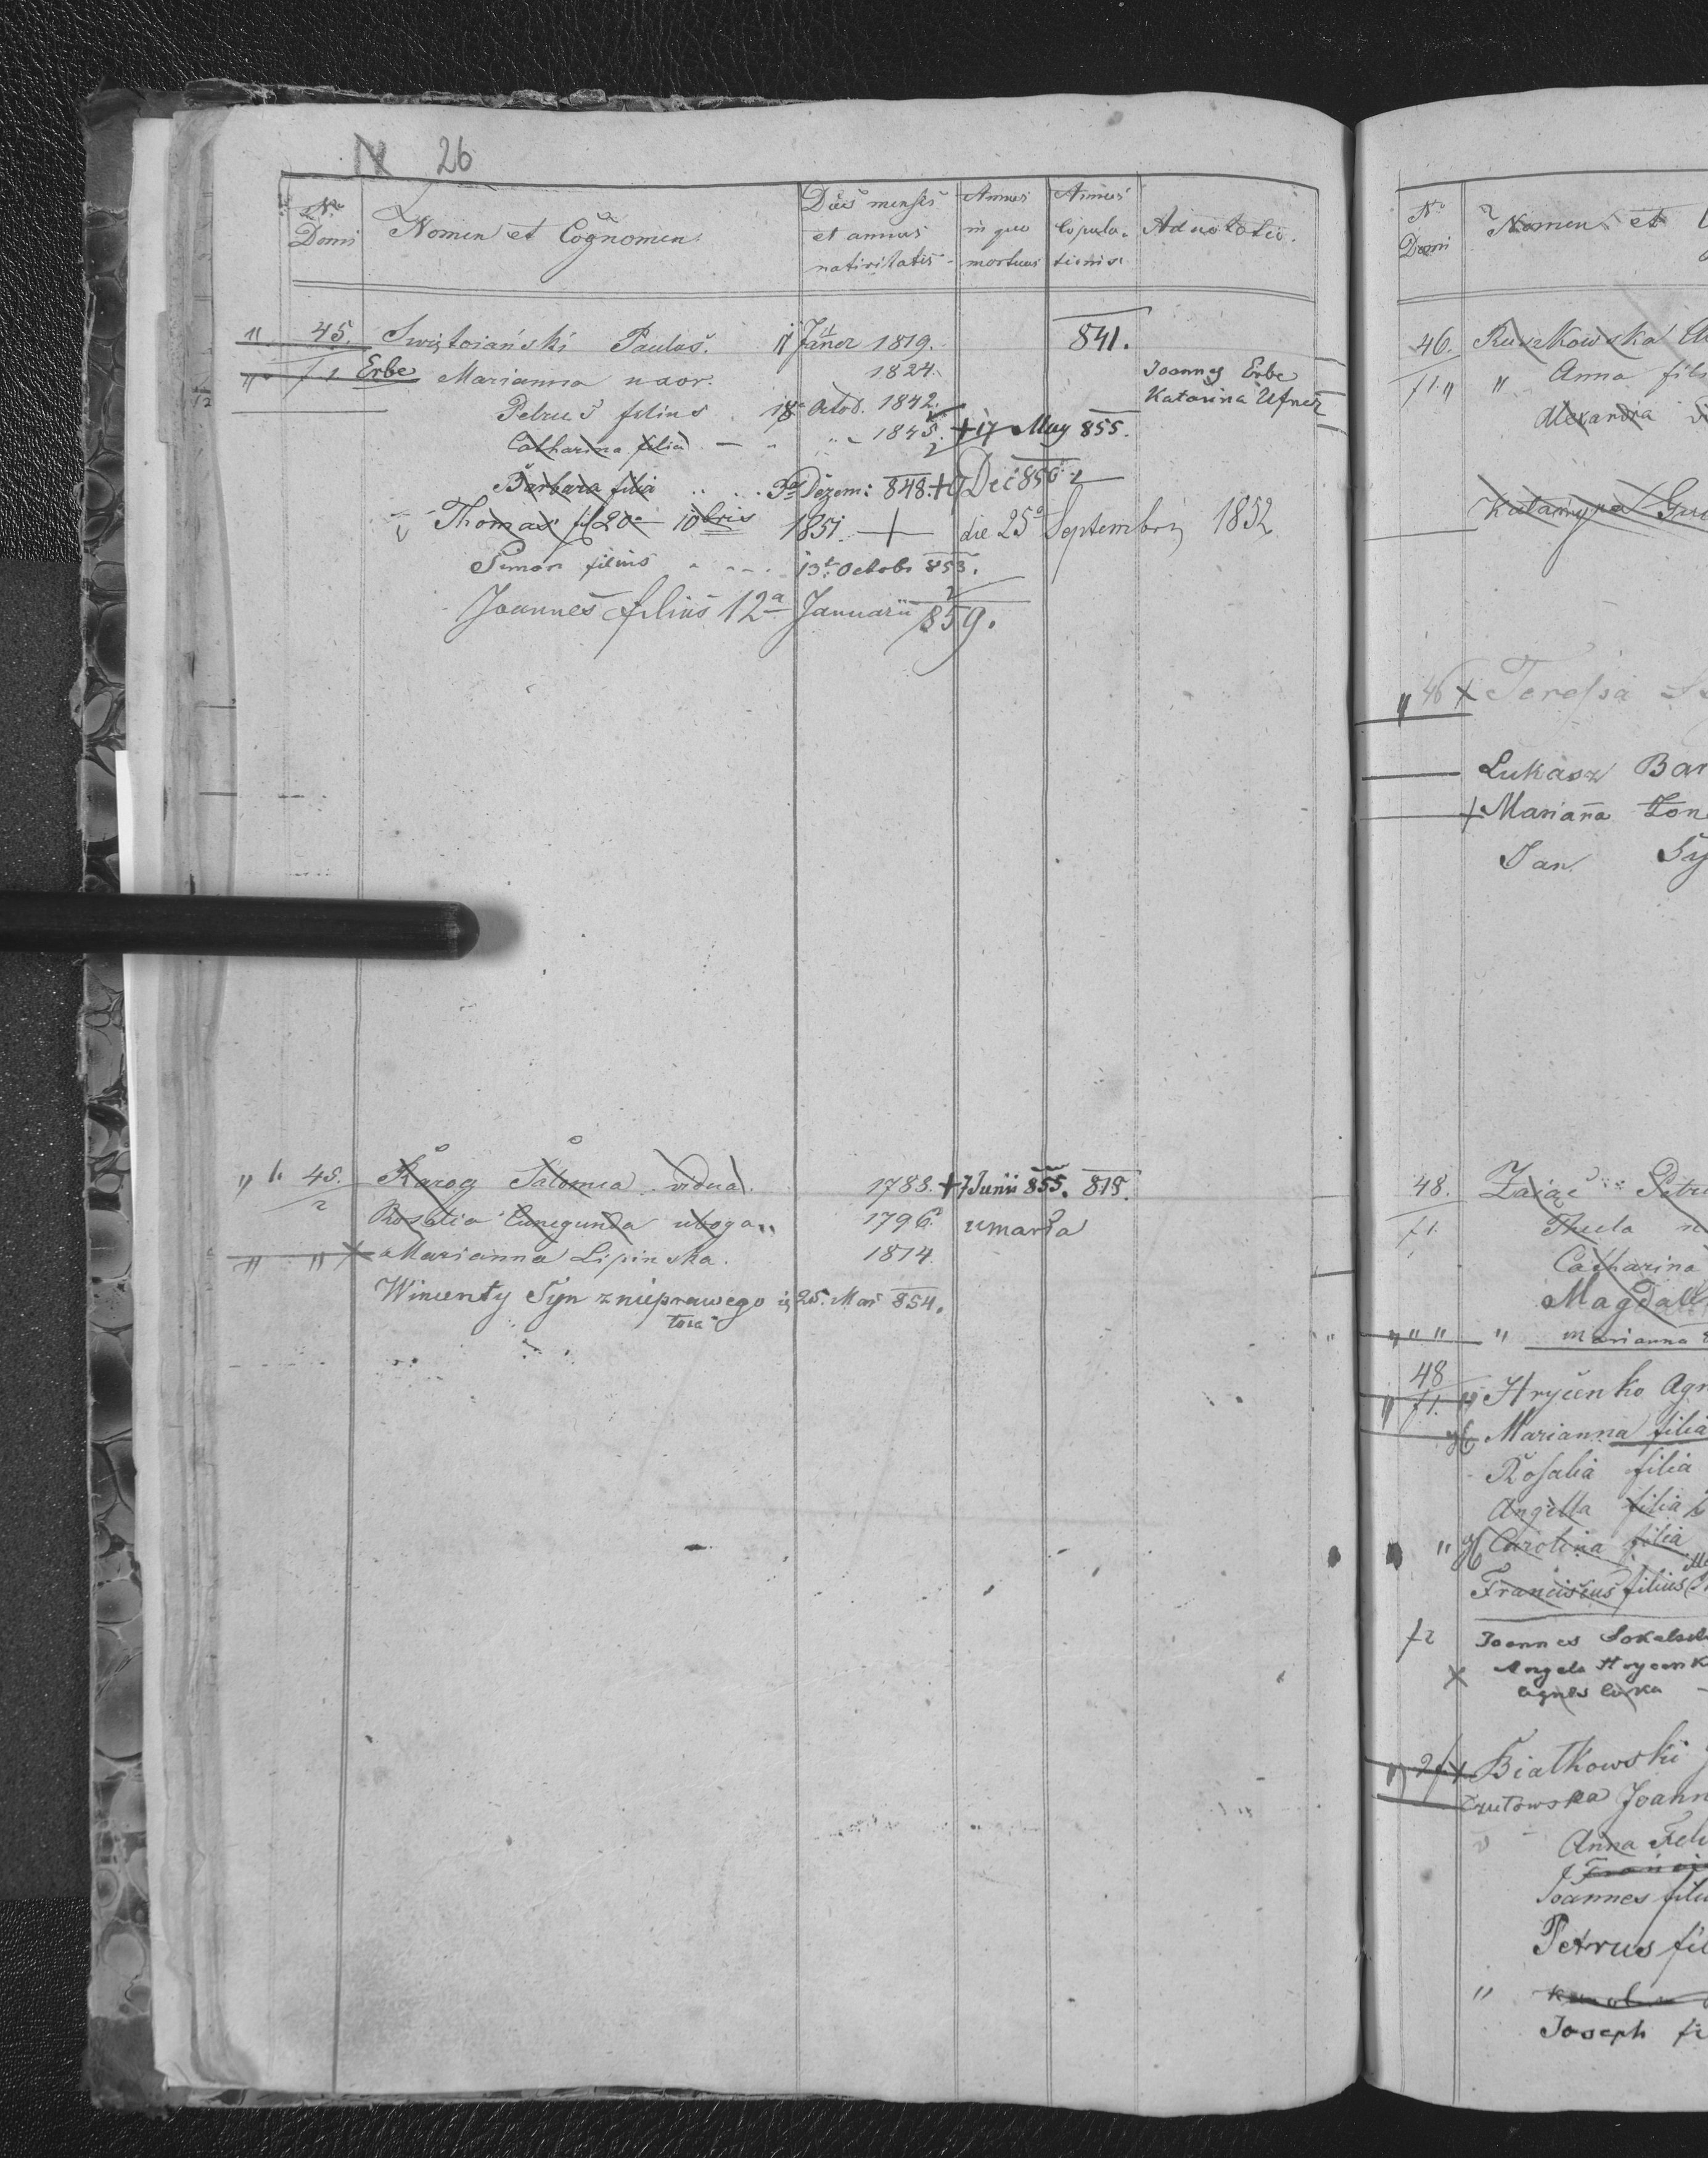 26
Nro Domi
Nomen et Cognomen
Dies mensis et annus nativitatis
Annus in quo mortuus
Annus Copulationis
Adnotatio.
" 45. Swiętoiański Paulus. Jäner 1819. 841.
f 1 Erbe Marianna uxor. 1824. Joannes Erbe
Petrus filius 18 Octob. 1842. Katarina Ufner
Catharina filia — " 1845. + 17 May 855.
Barbara filia Dezem: 848. + Dec 856
Thomas fil 20a 10bris 1851. + die 25a Septembris 1852
Simon filius 13t Octob 853.
Joannes filius 12a Januarii 859.
" " 45. Karog Salomea vidua. 1788. + 7 Junii 855. 815.
2 Rosalia Cunegunda uboga " 1796. umarła
" " x Marianna Lipinska. 1814
Wincenty Syn z nieprawego 25. Mar 854.
łoża
Nro Domi
Nomen et
46. Ruszkowska
f 1. " " Anna fili
Alexandra
Katarzyna
" 46 x Teressa
Lukasz Bar
+ Mariana Żon
Jan Sy
48. Zając Petru
f 1. Thecla
Catharina
Magdal
" " " " Marianna
48
" f 1. Hryćenko Agn
Marianna filia
Rosalia filia
Angella filia
" Carolina filia
Franciscus filius
f 2 Joannes Sokalsk
x Angela Hrycenk
Agnes
2 f x Białkowski
Joann
Anna
Joannes filiu
Petrus fil
"
Joseph fi